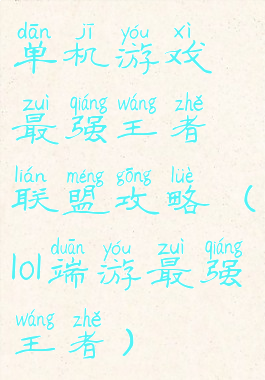 dān jī yóu xì
单机游戏
zuì qiáng wáng zhě
最强王者
lián méng gōng lüè
联盟攻略（
duān yóu zuì qiáng
lol端游最强
wáng zhě
王者）